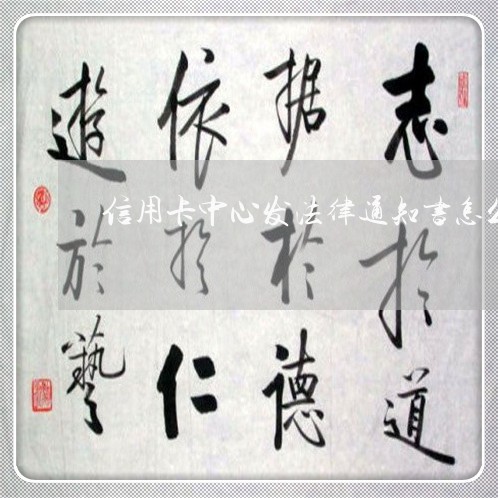 志於道
据於德
依於仁
遊於藝
信用卡中心发法律通知书怎么